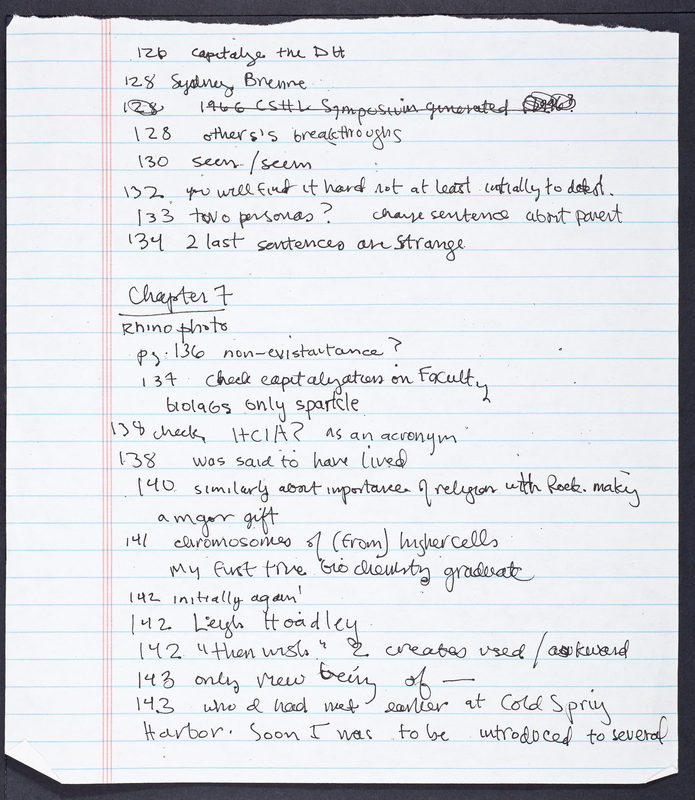 126 capitalize the DH
128 Sydney Brenne
128 1966 CSHL Symposium generated
128 others's breakthroughs
130 seen/seem
132 you will find it hard not at least initially to detest.
133 two personas? change sentence about parent
134 2 last sentences are strange
Chapter 7
Rhino photo
pg. 136 non-existantance?
137 check capitalization on Faculty
biolabs only sparkle
138 check HCIA? as an acronym
138 was said to have lived
140 similarly about importance of religion with Rock. making
a major gift
141 chromosomes of (from) higher cells
My first true biochemistry graduate
142 initially again!
142 Leigh Hoadley
142 "then wish" 2 creates used/awkward
143 only new being of —
143 who I had met earlier at Cold Spring
Harbor. Soon I was to be introduced to several